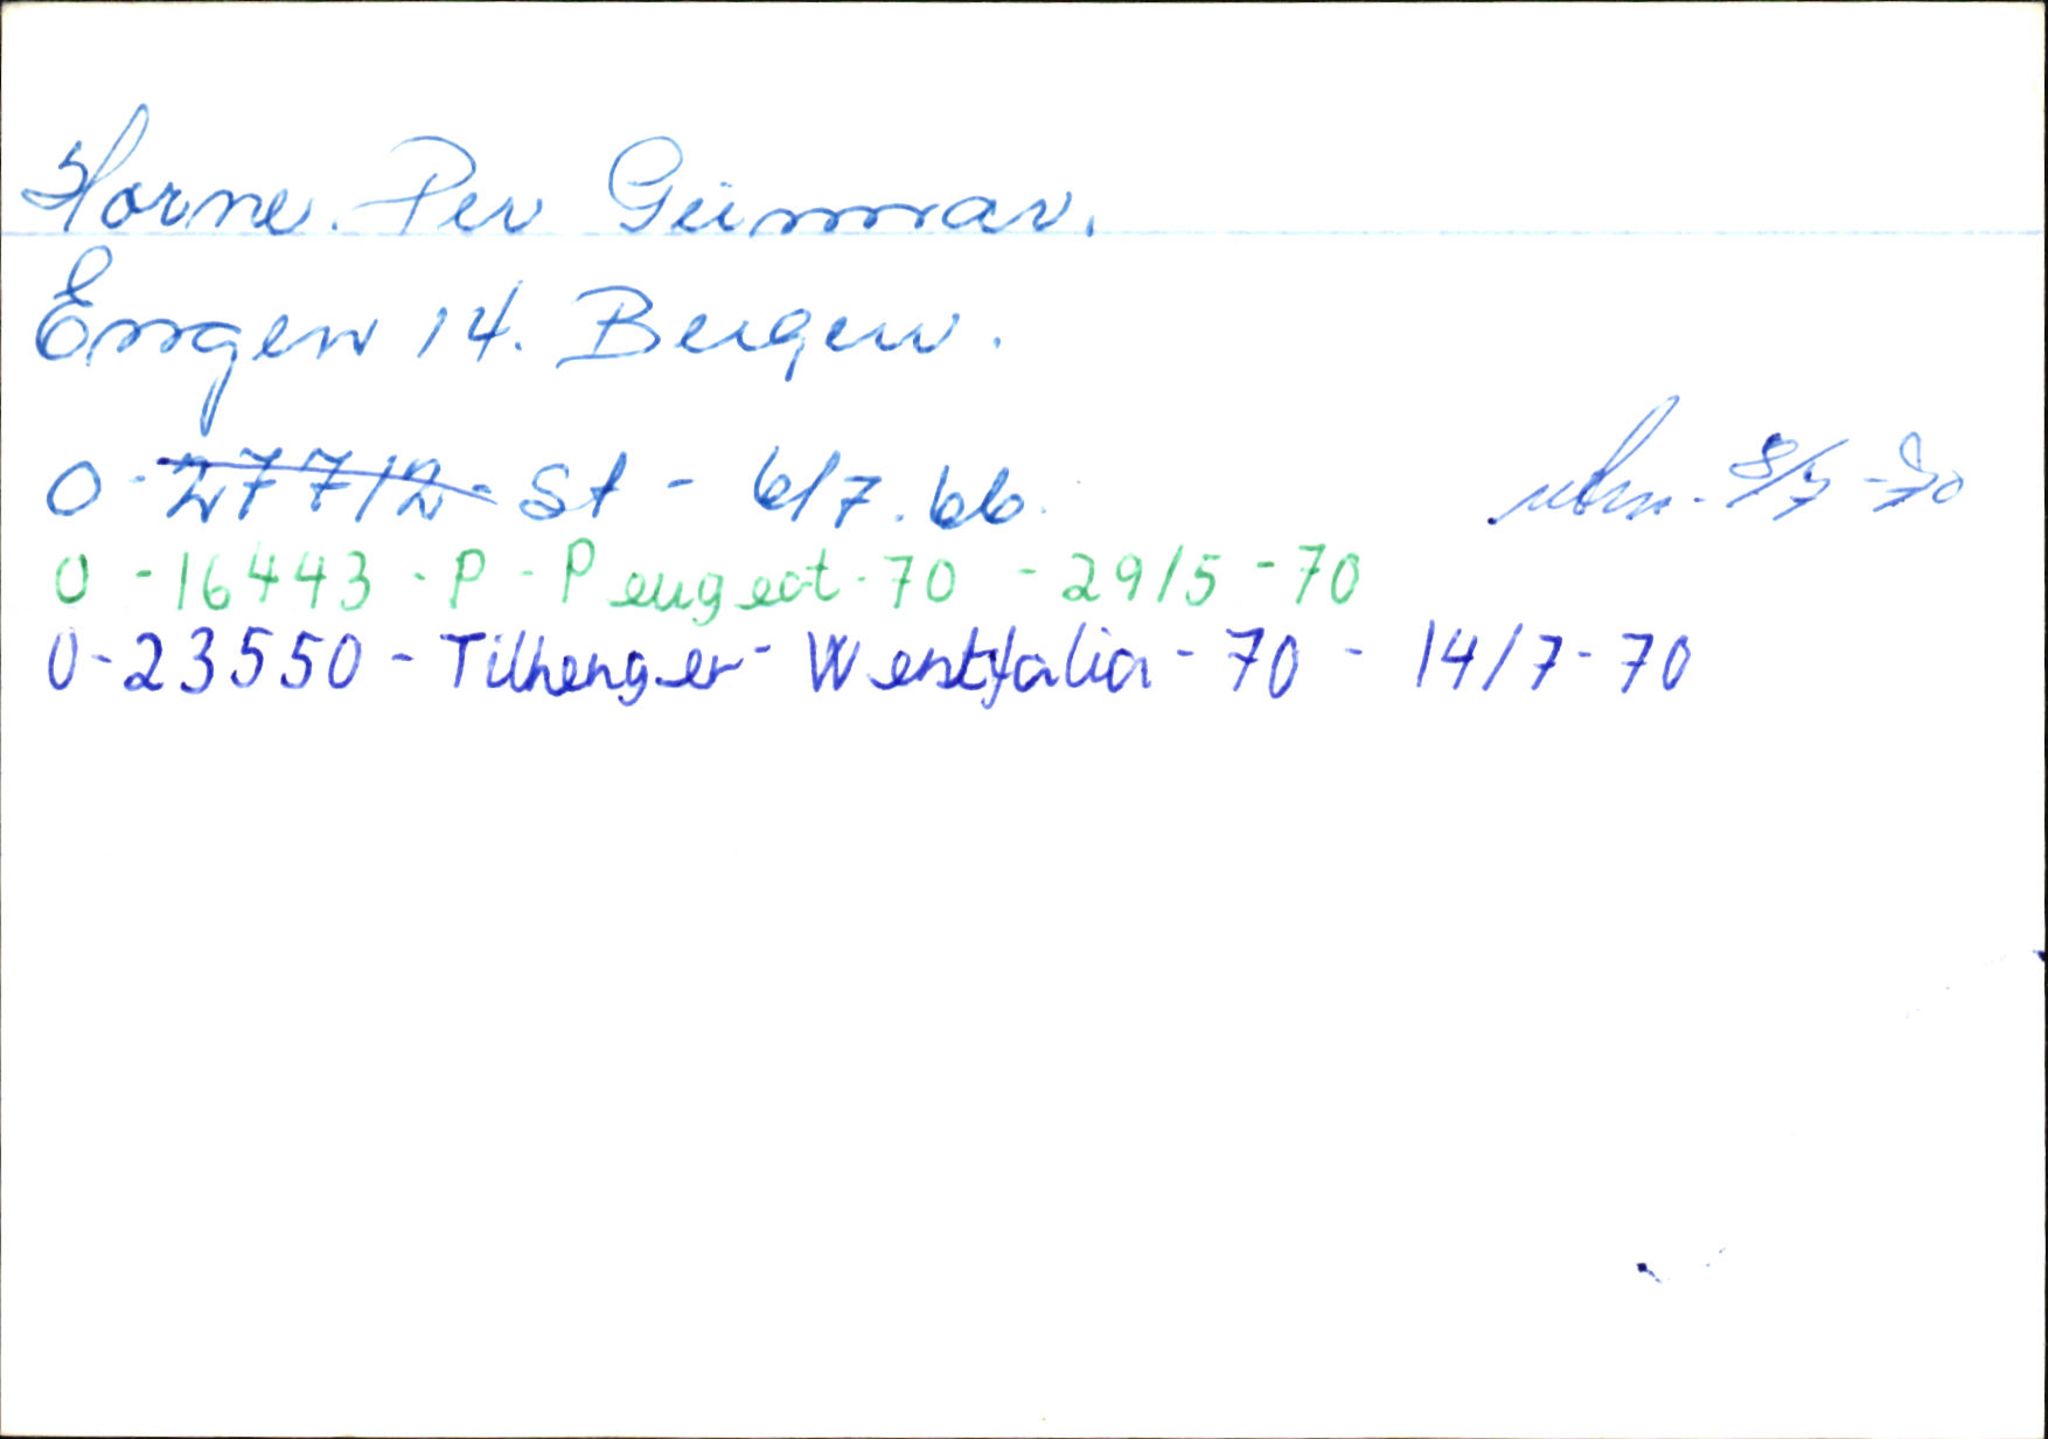 Horne. Per Gunnar.
Engen 14. Bergen.
O-27712-St - 6/7.66. 8/7-70
O-16443-P-Peugeot-70 - 29/5-70
O-23550-Tilhenger-Westfalia-70 - 14/7-70